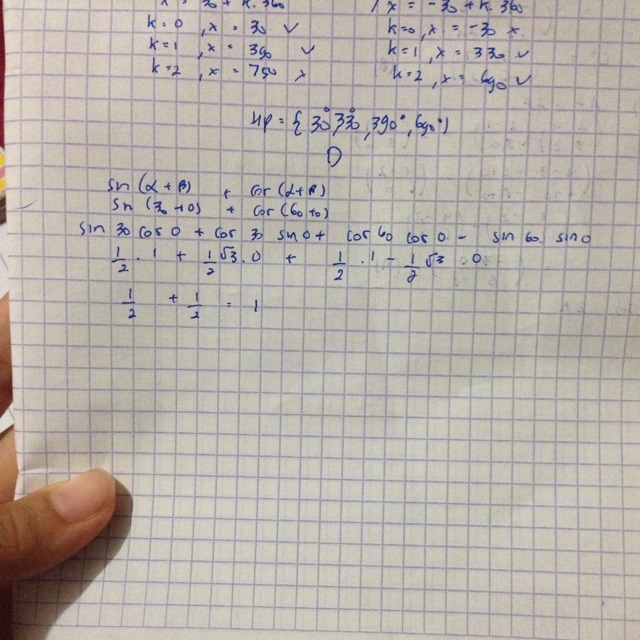 x = 30 + k. 360 / x = -30 + k. 360
k=0 , x = 30 ✓ k=0, x = -30 x
k=1 , x = 390 ✓ k=1, x = 330 ✓
k=2 , x = 750 x k=2, x = 690 ✓
Hp = { 30°, 330°, 390°, 690° }
D
sin (α + β) + cos (α+β)
sin (30 + 0) + cos (60+0)
sin 30 cos 0 + cos 30 sin 0 + cos 60 cos 0 - sin 60 sin 0
1/2 . 1 + 1/2 √3 . 0 + 1/2 . 1 - 1/2 √3 . 0
1/2 + 1/2 = 1